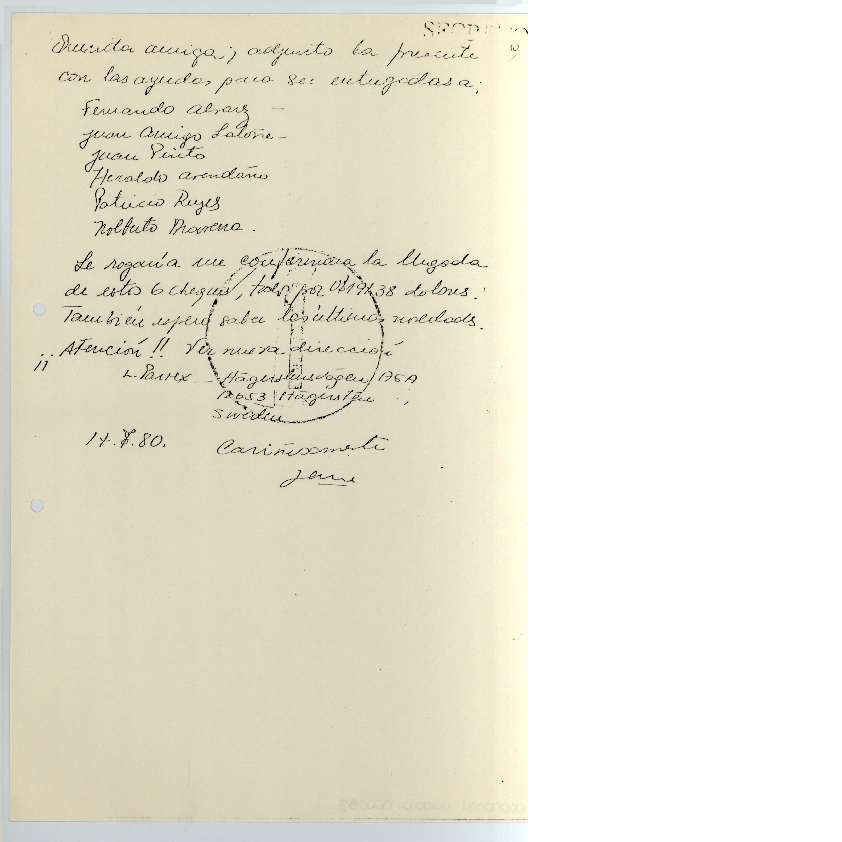 Querida amiga; adjunto la presente
con las ayudas para ser entregadas a:
Fernando Alvarez -
Juan Amigo Latorre -
Juan Pinto
Heraldo Arendaño
Patricio Reyes
Nolberto
Le rogaría me confirmara la llegada
de estos 6 cheques, todos por 38 dolares.
También espero saber las últimas
¡¡ Atención!! Ver nueva dirección
L. Hägerstensvägen 175A
12653 Hägersten
Sweden
14. .80. Cariñosamente